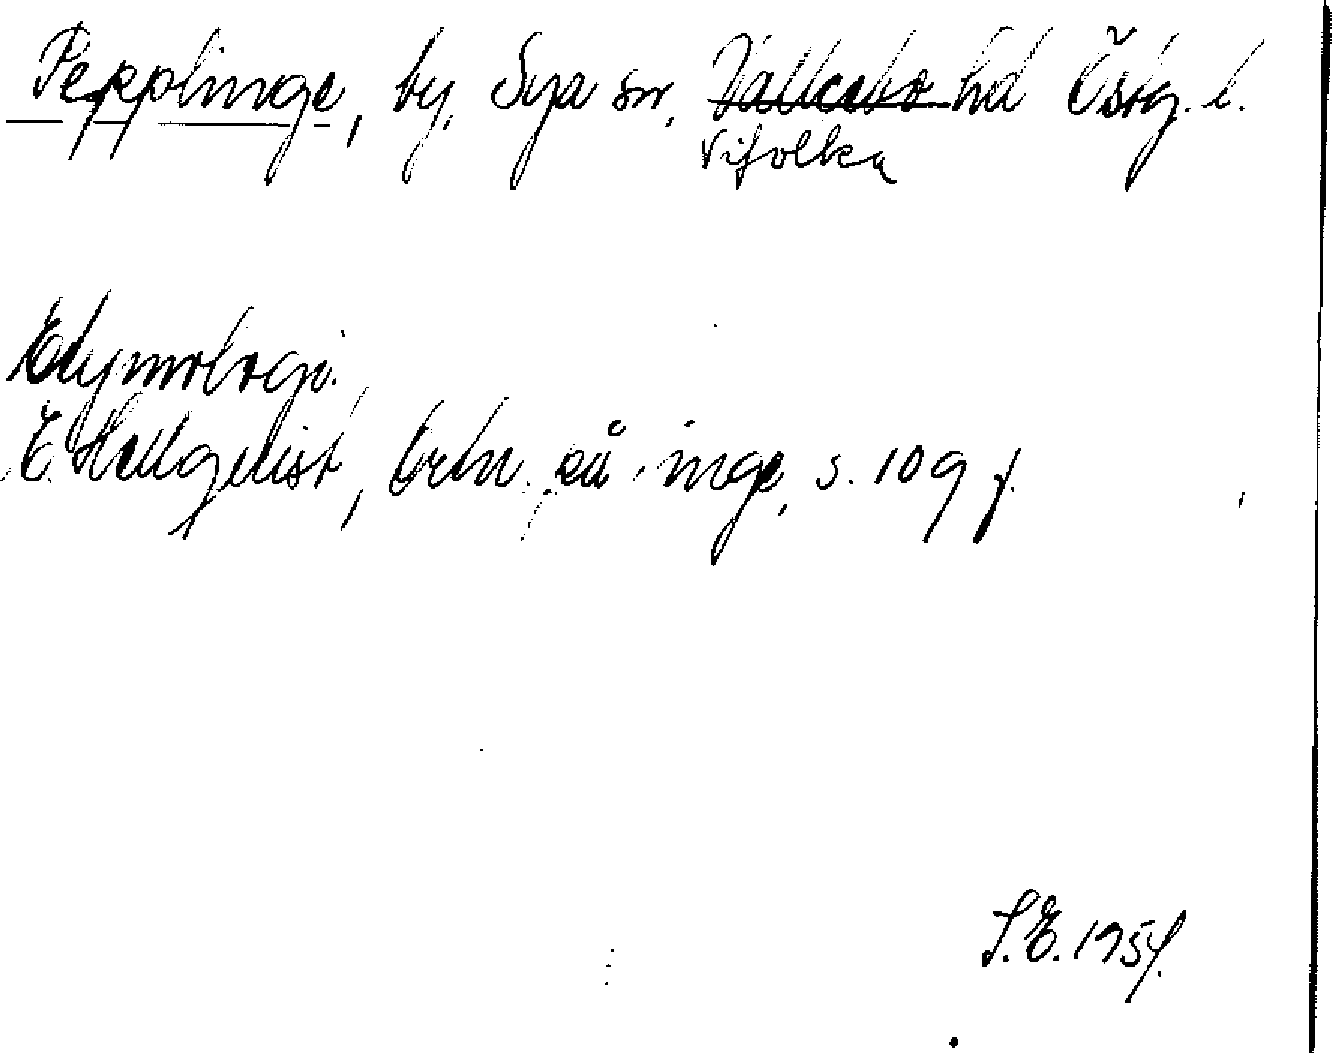 Pepplinge, by, Sya sn, Valkebo hd Östg. l.
Vifolka
Etymologi.
E. Hellquist, Ortn. på -inge, s. 109 f.
S.E. 1954.